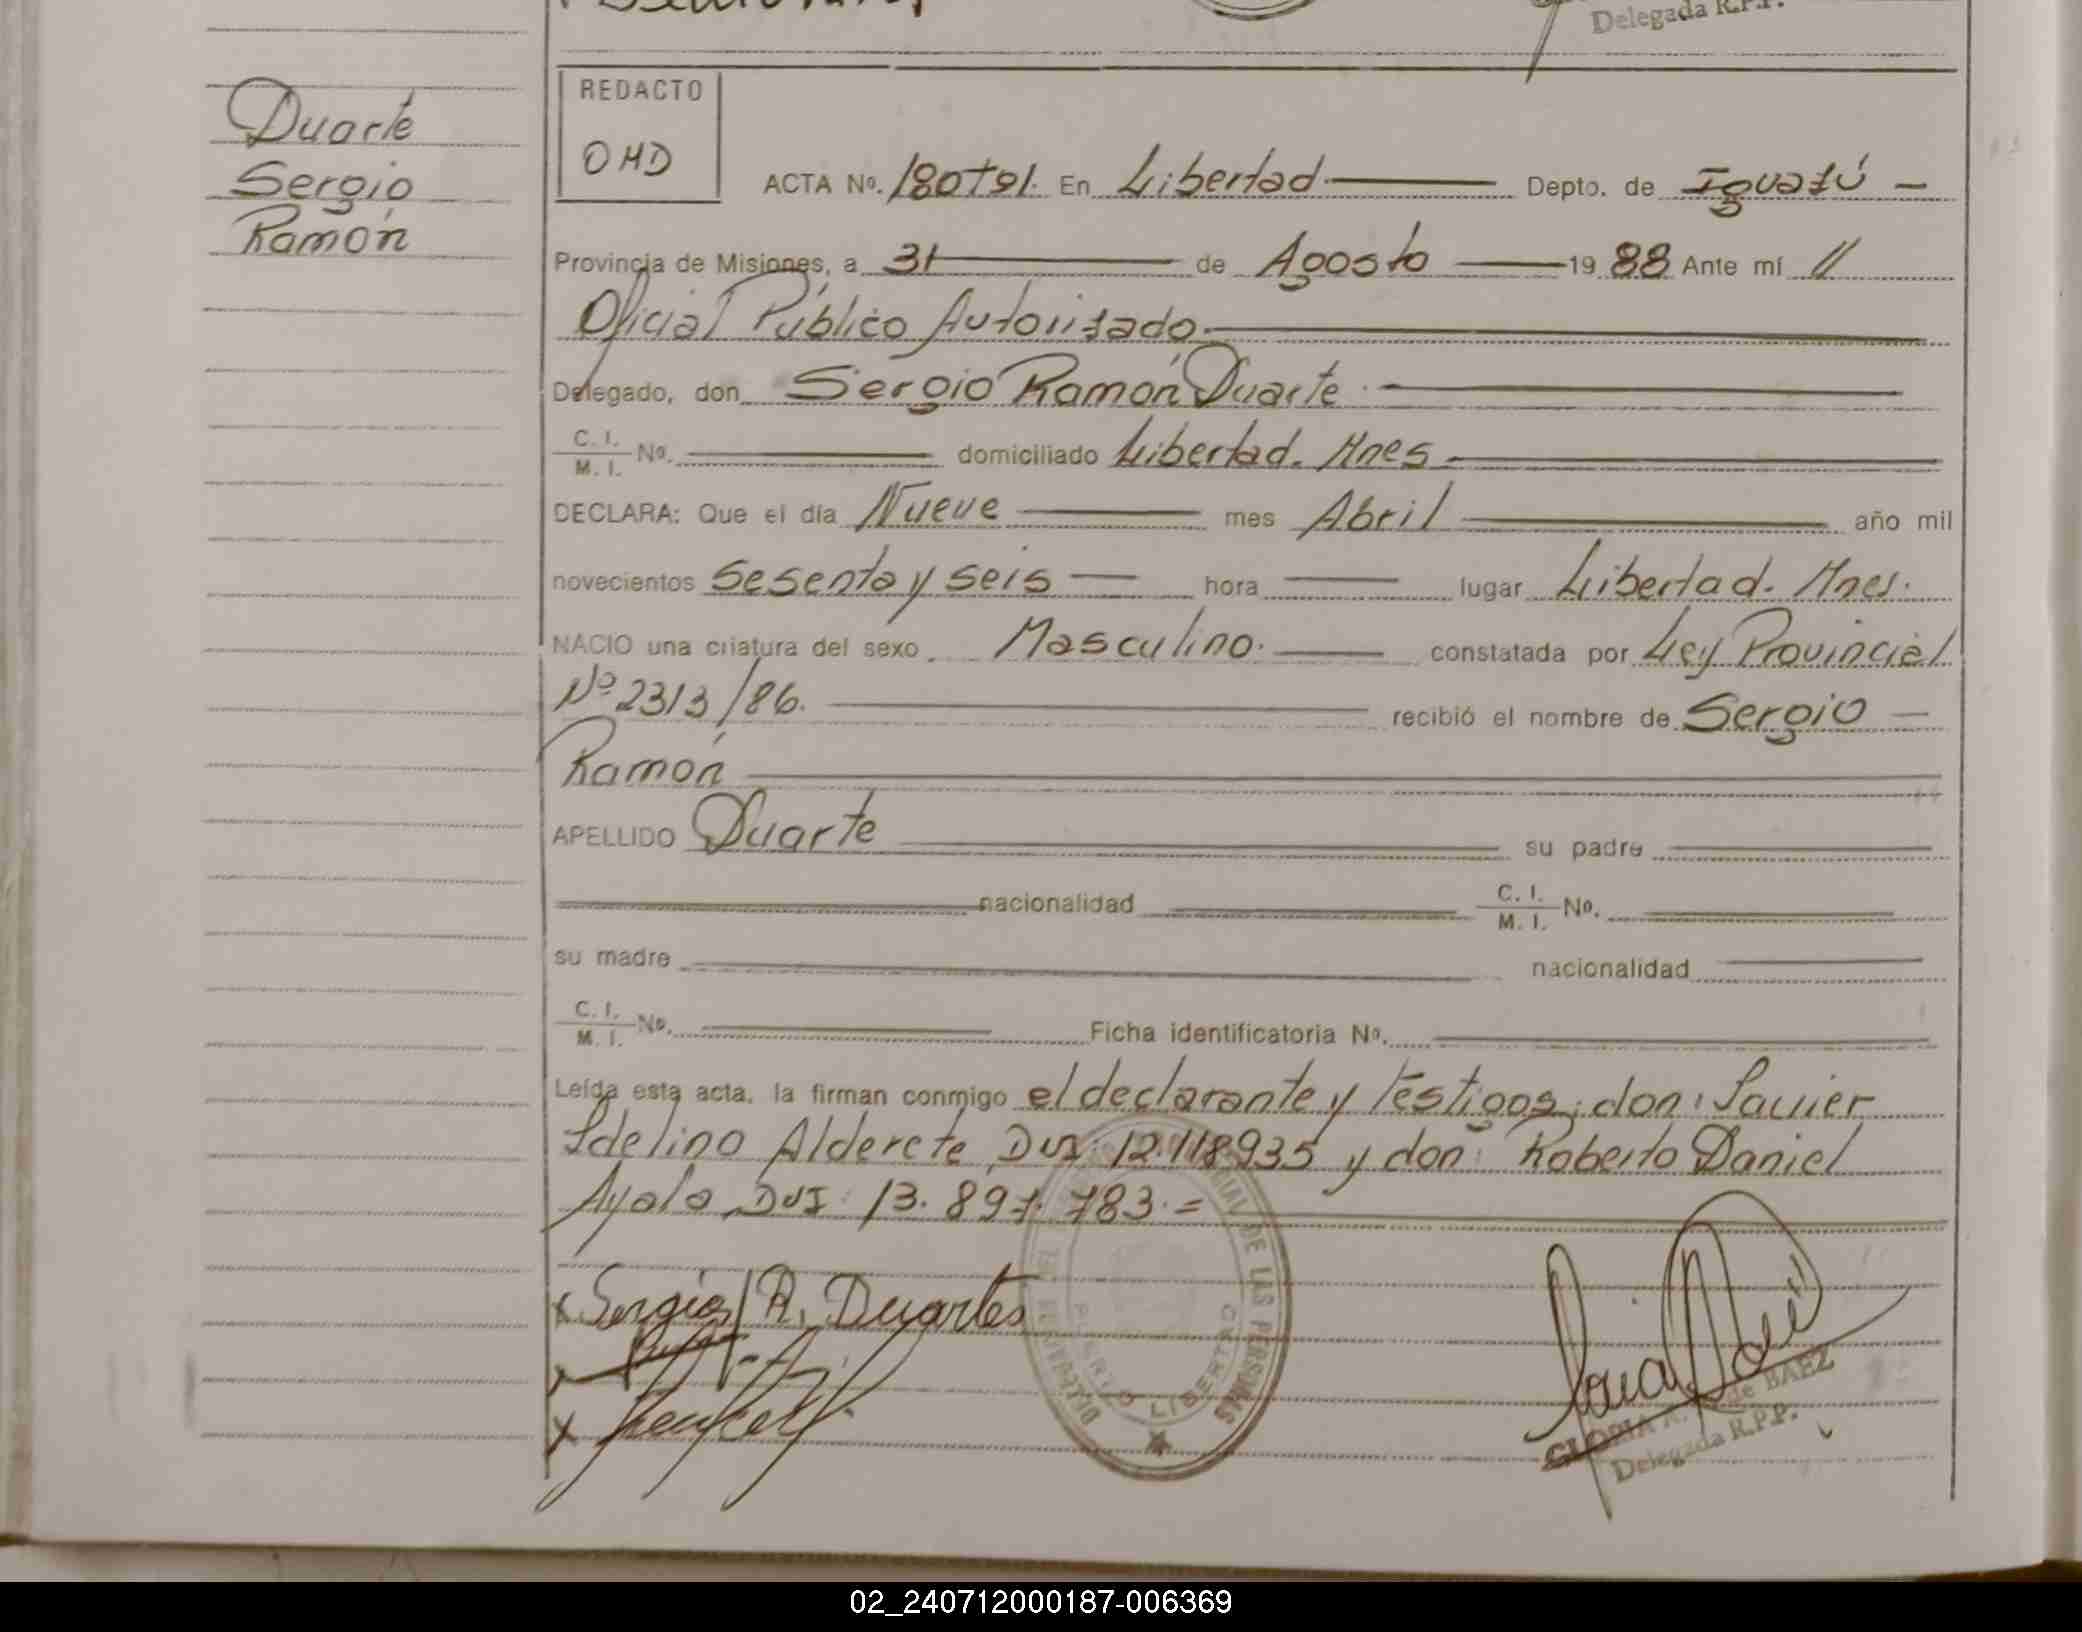 Delegada R.P.P.
Duarte
Sergio
Ramón
REDACTO
OMD
ACTA Nº. 180 t°1. En Libertad Depto. de Iguazú
Provincia de Misiones, a 31 de Agosto 1988 Ante mí //
Oficial Público Autorizado.
Delegado, don Sergio Ramón Duarte.
C. I.
M. I. Nº. domiciliado Libertad. Mnes
DECLARA: Que el día Nueve mes Abril año mil
novecientos Sesenta y Seis hora lugar Libertad. Mnes.
NACIO una criatura del sexo Masculino. constatada por Ley Provincial
Nº 2313/86. recibió el nombre de Sergio
Ramón
APELLIDO Duarte su padre
nacionalidad C. I.
M. I. Nº.
su madre nacionalidad
C. I.
M. I. Nº. Ficha identificatoria Nº.
Leída esta acta, la firman conmigo el declarante y testigos; don: Javier
Idelino Alderete DNI: 12.118935 y don: Roberto Daniel
Ayala DNI: 13.897.783.=
x Sergio R. Duartes
x
x
DE LAS PERSONAS
PUERTO LIBERTAD
de BAEZ
GLORIA
Delegada R.P.P.
02_240712000187-006369